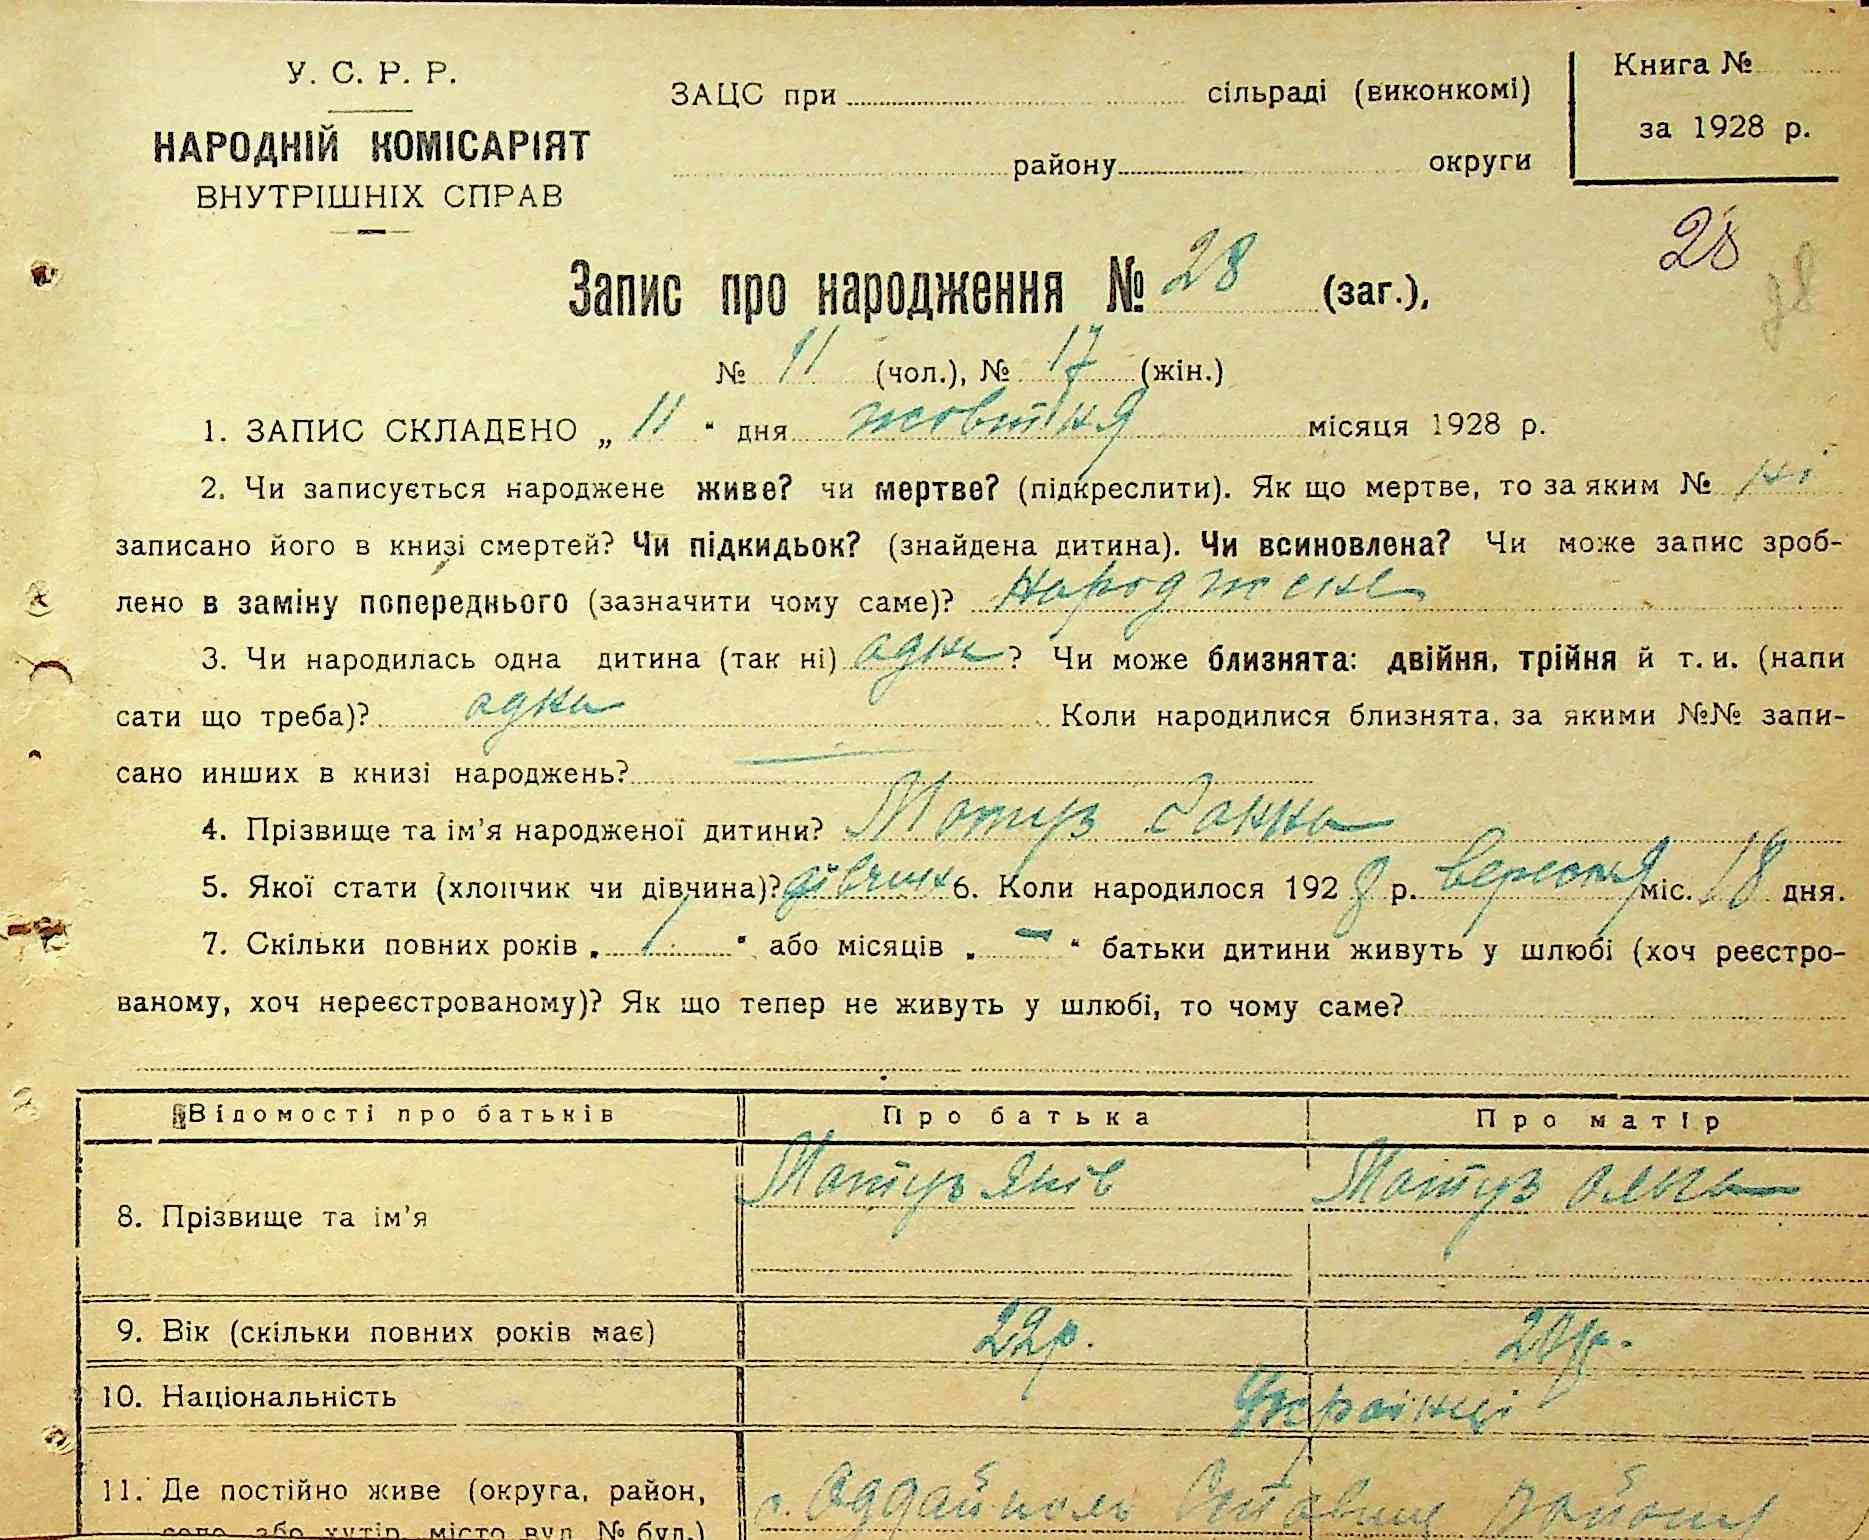 У. С. Р. Р.
НАРОДНІЙ КОМІСАРІЯТ
ВНУТРІШНІХ СПРАВ
ЗАЦС при сільраді (виконкомі)
району округи
Книга №
за 1928 р.
28
28
Запис про народження № 28 (заг.),
№ 11 (чол.), № 17 (жін.)
1. ЗАПИС СКЛАДЕНО „ 11 “ дня жовтня місяця 1928 р.
2. Чи записується народжене живе? чи мертве? (підкреслити). Як що мертве, то за яким № ні
записано його в книзі смертей? Чи підкидьок? (знайдена дитина). Чи всиновлена? Чи може запис зроб-
лено в заміну попереднього (зазначити чому саме)? Народжене
3. Чи народилась одна дитина (так ні) одна ? Чи може близнята: двійня, трійня й т. и. (напи
сати що треба)? одна Коли народилися близнята, за якими №№ запи-
сано инших в книзі народжень? —
4. Прізвище та ім'я народженої дитини? Мотуз Ганна
5. Якої стати (хлопчик чи дівчина)? дівчина 6. Коли народилося 1928 р. вересня міс. 18 дня.
7. Скільки повних років „ 1 “ або місяців „ — “ батьки дитини живуть у шлюбі (хоч реєстро-
ваному, хоч нереєстрованому)? Як що тепер не живуть у шлюбі, то чому саме?
Відомості про батьків Про батька Про матір
8. Прізвище та ім'я Мотуз Яків Мотуз Ольга
9. Вік (скільки повних років має) 22 р. 20 р.
10. Національність Українці
11. Де постійно живе (округа, район, с. Оддайполь Ставищ району
село або хутір, місто вул. № буд.)